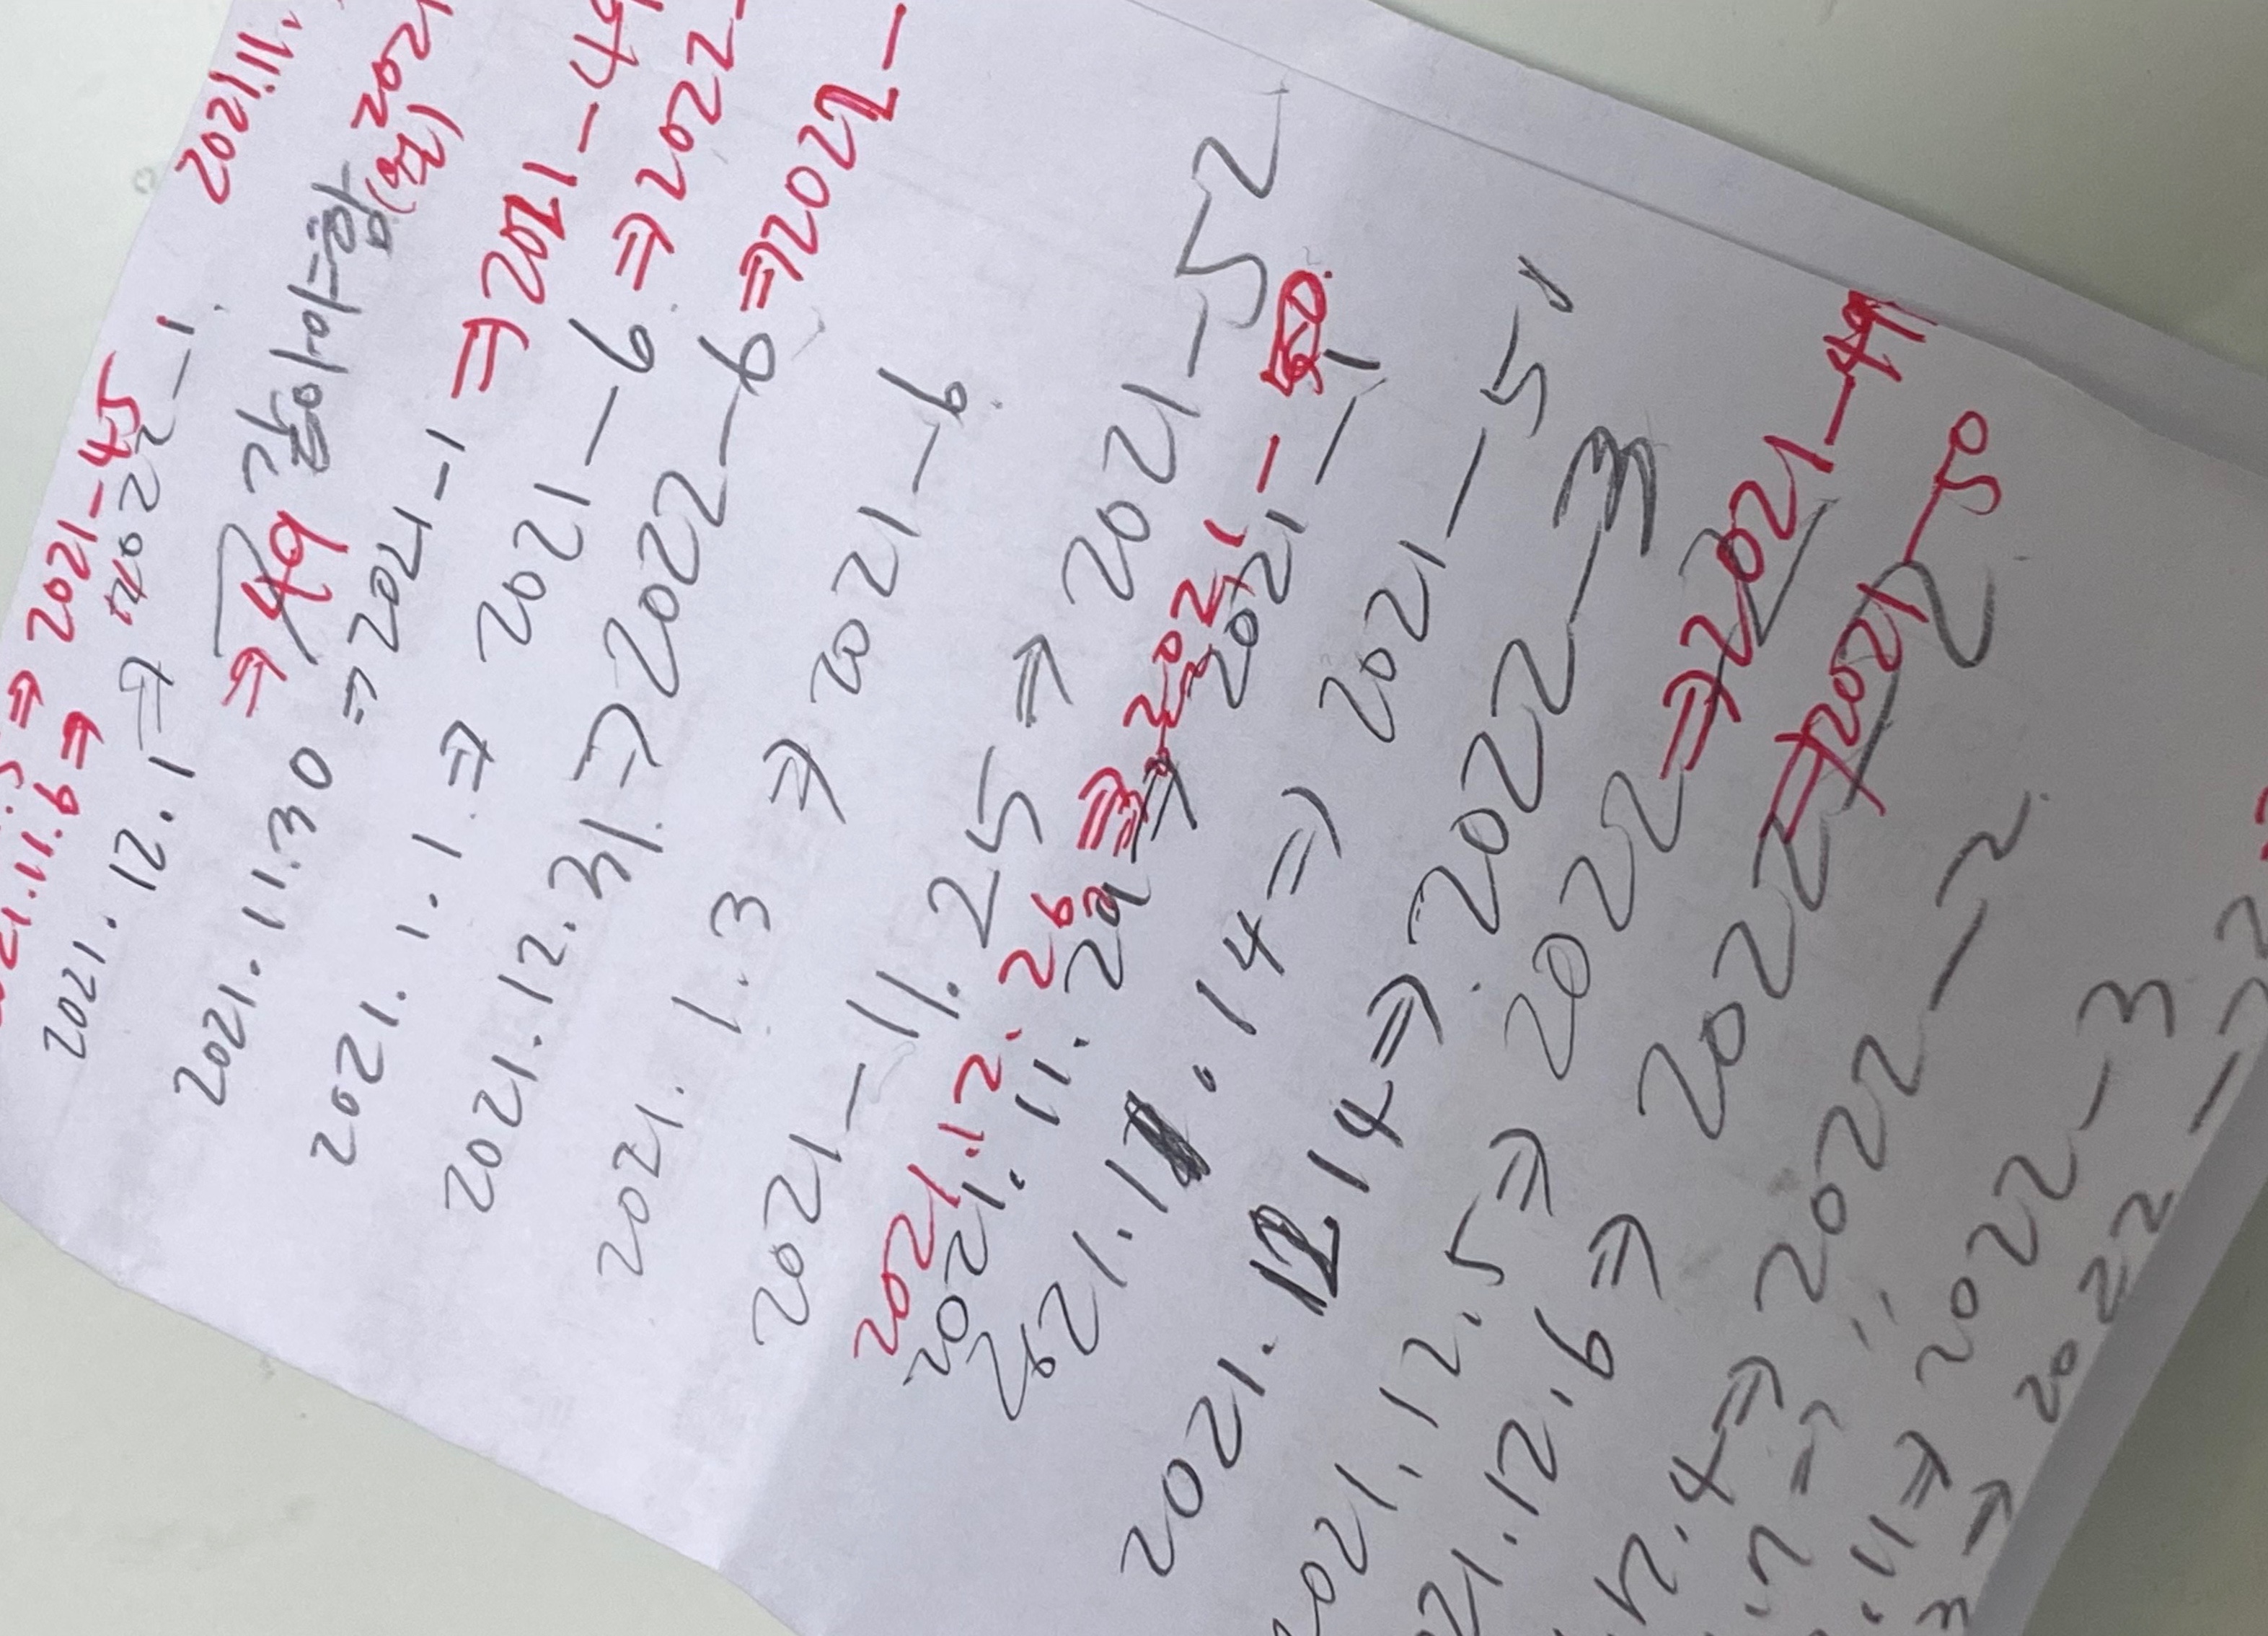 ⇒ 2021-45
21.11.6 ⇒
2021.12.1 ⇒ 2022-1.
2021.11.
⇒ 49
2021.11.30 ⇒ 2021-1 ⇒ 2021-49
2021.1.1 ⇒ 2021-6 ⇒ 2022-
2021.12.31 ⇒ 2022-6 ⇒ 2021-
2021.1.3 ⇒ 2021-6
2021-11.25 ⇒ 2021-52
2021.12.26 ⇒ 2021-50.
2021.11.29 ⇒ 2021-1
2021.11.14 ⇒ 2021-51
2021.12.14 ⇒ 2022-3
2021.12.5 ⇒ 2022 ⇒ 2021-49
21.12.6 ⇒ 2022-2 ⇒ 2021-50
12.4 ⇒ 2022-2
⇒ "
.11 ⇒ 2022-3
3 ⇒ 2022-